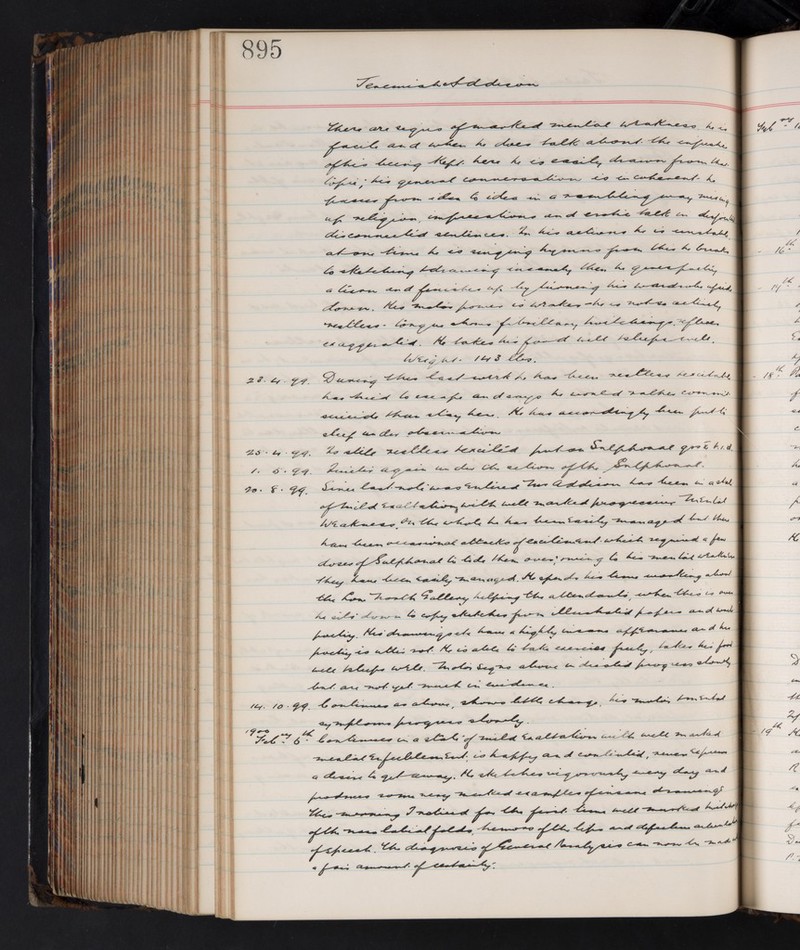 895
Jeremiah Addison
There are signs of marked mental weakness, he is
facile and when he does talk about the
of his being kept here he is easily drawn from the
topic; his general conversation is incoherent. he
passes from idea to idea in a rambling way mixing
up religion, and erotic talk in
disconnected sentences. In his actions he is unstable,
at one time he is singing hymns from this he breaks
to sketching & drawing insanely then he goes
and finishes up by turning his wardrobe upside
down. His motor power is weaker & he is not so actively
restless. Tongue shows fibrillary twitchings,
exaggerated. He takes his food well & sleeps well.
Weight. 143 lbs.
23. 4. 99. During this last week he has been restless & excitable
has tried to escape and says he would rather commit
suicide than stay here. He has accordingly been put to
sleep under observation
25. 4. 99. Is still restless & excited put on Sulphonal t.i.d.
1. 5. 99. Quieter again under the action of the Sulphonal.
20. 8. 99. Since last note was entered Mr Addison has been in a state
of mild exaltation, with well marked progressive mental
weakness. On the whole he has been easily managed but there
have been occasional attacks of excitement which required a few
doses of Sulphonal to tide them over; owing to his mental weakness
they have been easily managed. He spends his time working about
the North Gallery helping the attendants, when this is over
he sits down to copy sketches from illustrated papers and write
poetry. His drawings etc have a highly insane appearance and his
poetry is utter rot. He is able to take exercise freely, takes his food
well & sleeps well. Motor signs above indicated progress slowly
but are not yet much in evidence.
14. 10. 99. Continues as above, shows little change, his motor & mental
symptoms progress slowly.
1900
Feby. 6th. Continues in a state of mild exaltation with well marked
mental enfeeblement, is happy and contented, never expresses
a desire to get away. He sketches vigorously every day and
produces some very marked examples of insane drawings
This morning I noticed for the first time well marked
of the naso labial folds, tremors of the lips and defective
of speech. The diagnosis of General Paralysis can now be made
a fair amount of certainty.
Feby
16th
17th
18th
19th